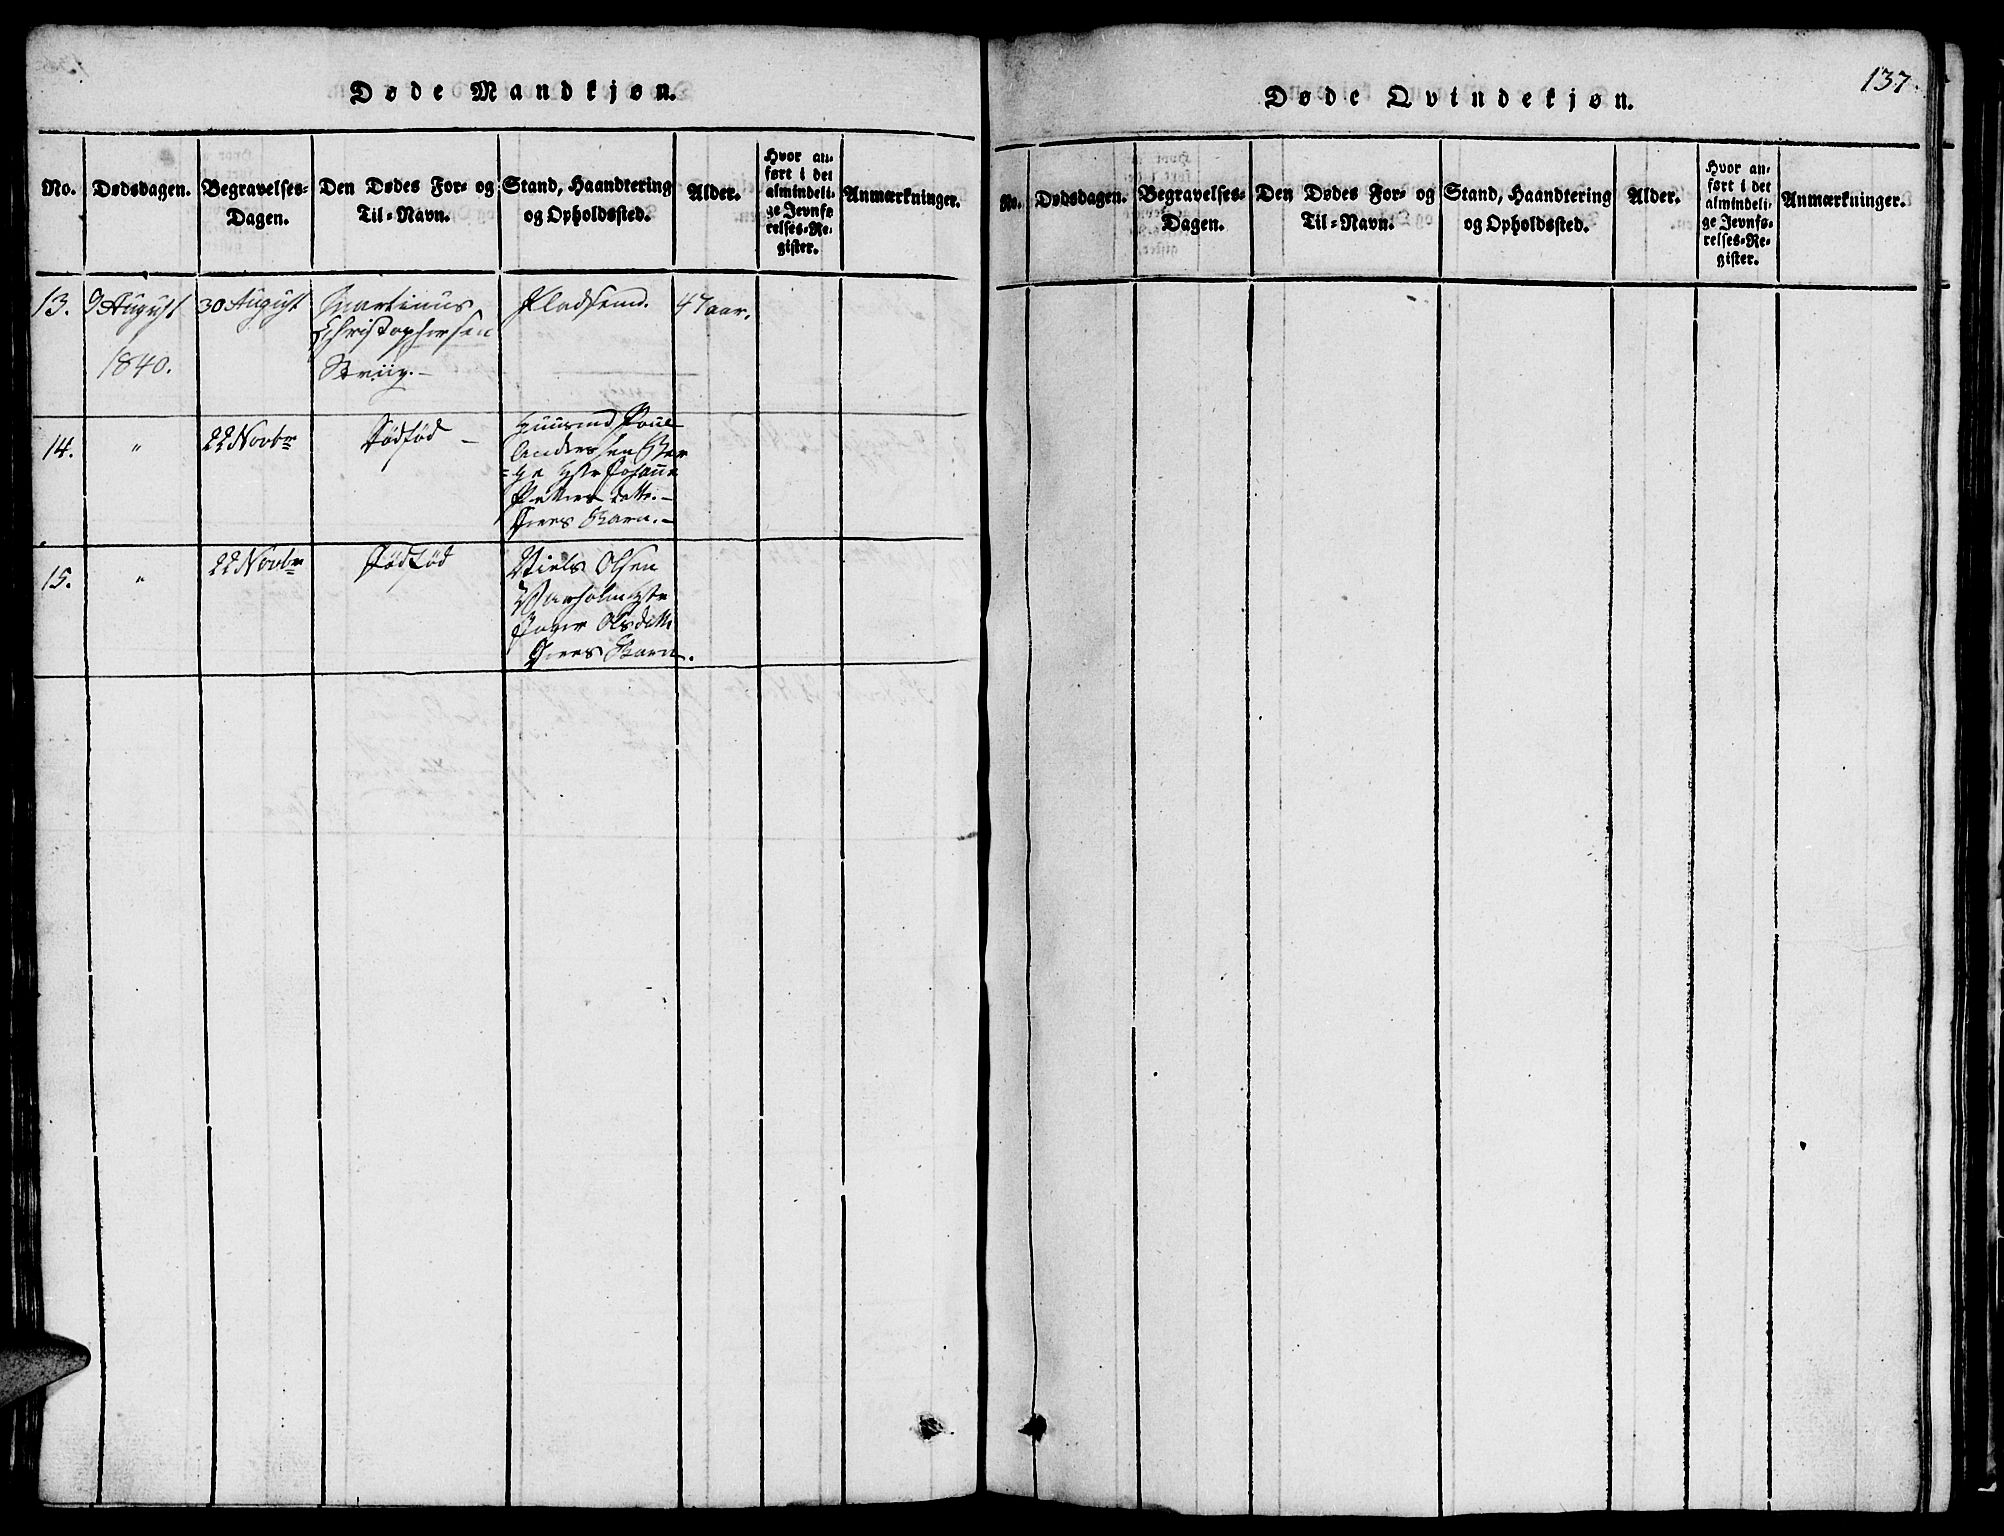 Døde Mandkjøn.
No.
Dødsdagen.
Begravelses-
Dagen.
Den Dødes For- og
Til-Navn.
Stand, Haandtering
og Opholdssted.
Alder.
Hvor an-
ført i det
almindeli-
ge Jevnfø
relses-Re-
gister.
Anmærkninger.
13.
9 August
1840.
30 August
Martinus
Christophersen
Pladsemd.
47 aar.
14.
"
22 Novbr
Dødfød -
Huusmd Poul
Anderssen
Petters Datt. -
Deres Barn. -
15.
"
22 Novbr
Dødfød
Niels Olsen
Olsdatt
Deres Barn.
137.
Døde Qvindekjøn.
No.
Dødsdagen.
Begravelses-
Dagen.
Den Dødes For- og
Til-Navn.
Stand, Haandtering
og Opholdssted.
Alder.
Hvor an-
ført i det
almindeli-
ge Jevnfø-
relses-Re-
gister.
Anmærkninger.